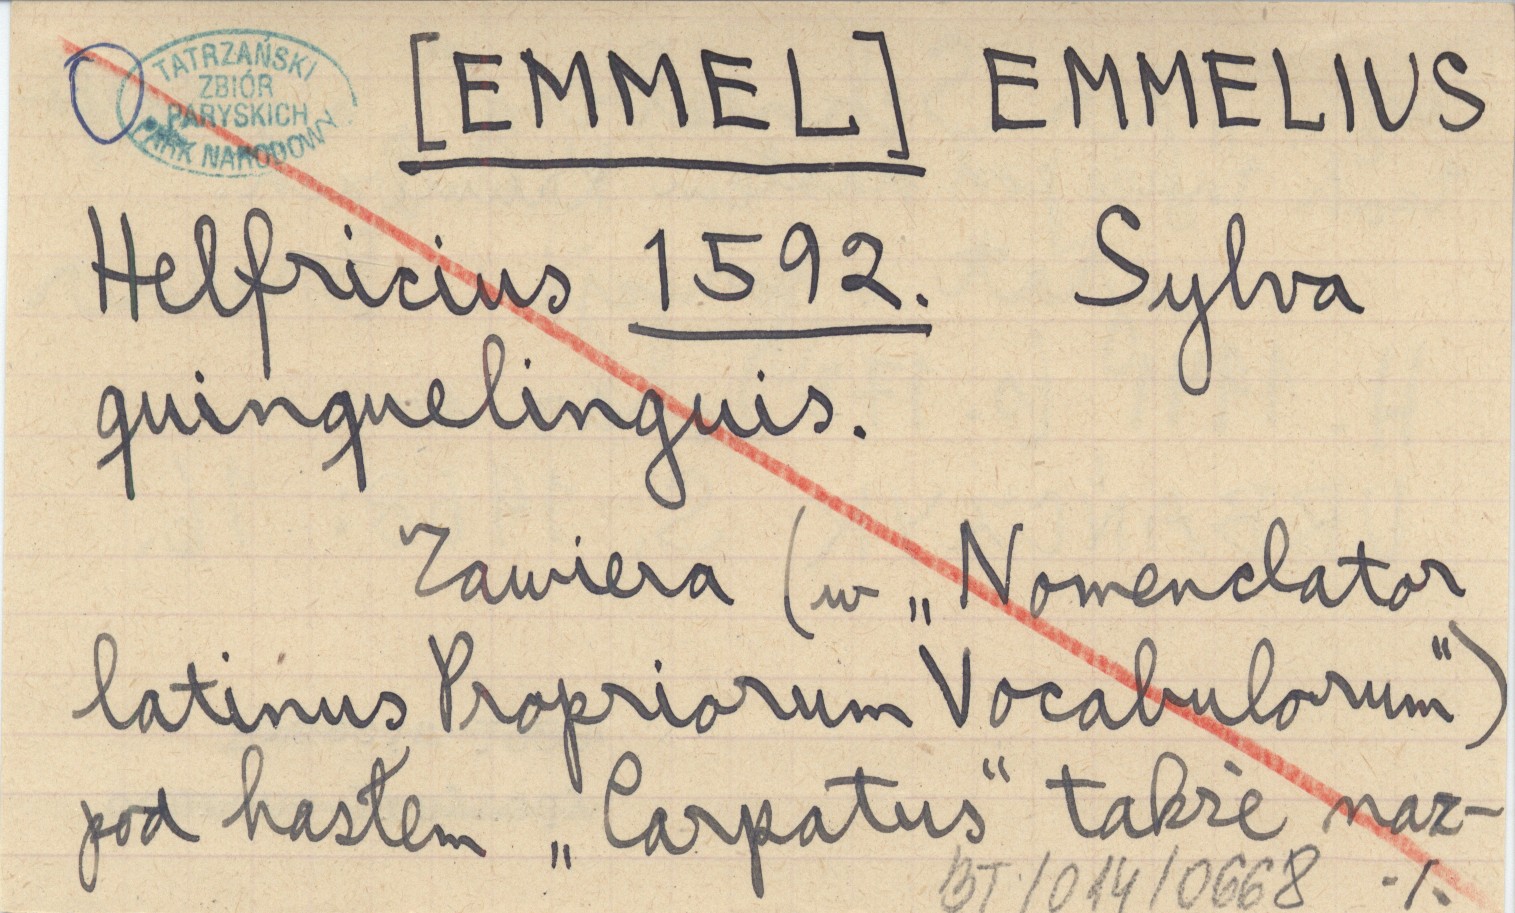 TATRZAŃSKI
ZBIÓR
PARYSKICH
PARK NARODOWY
[EMMEL] EMMELIUS
Helfricius 1592. Sylva
quinquelinguis.
Zawiera (w „Nomenclator
latinus Propriorum Vocabulorum")
pod hasłem „Carpatus" także naz-
BT/014/0668 ·/.